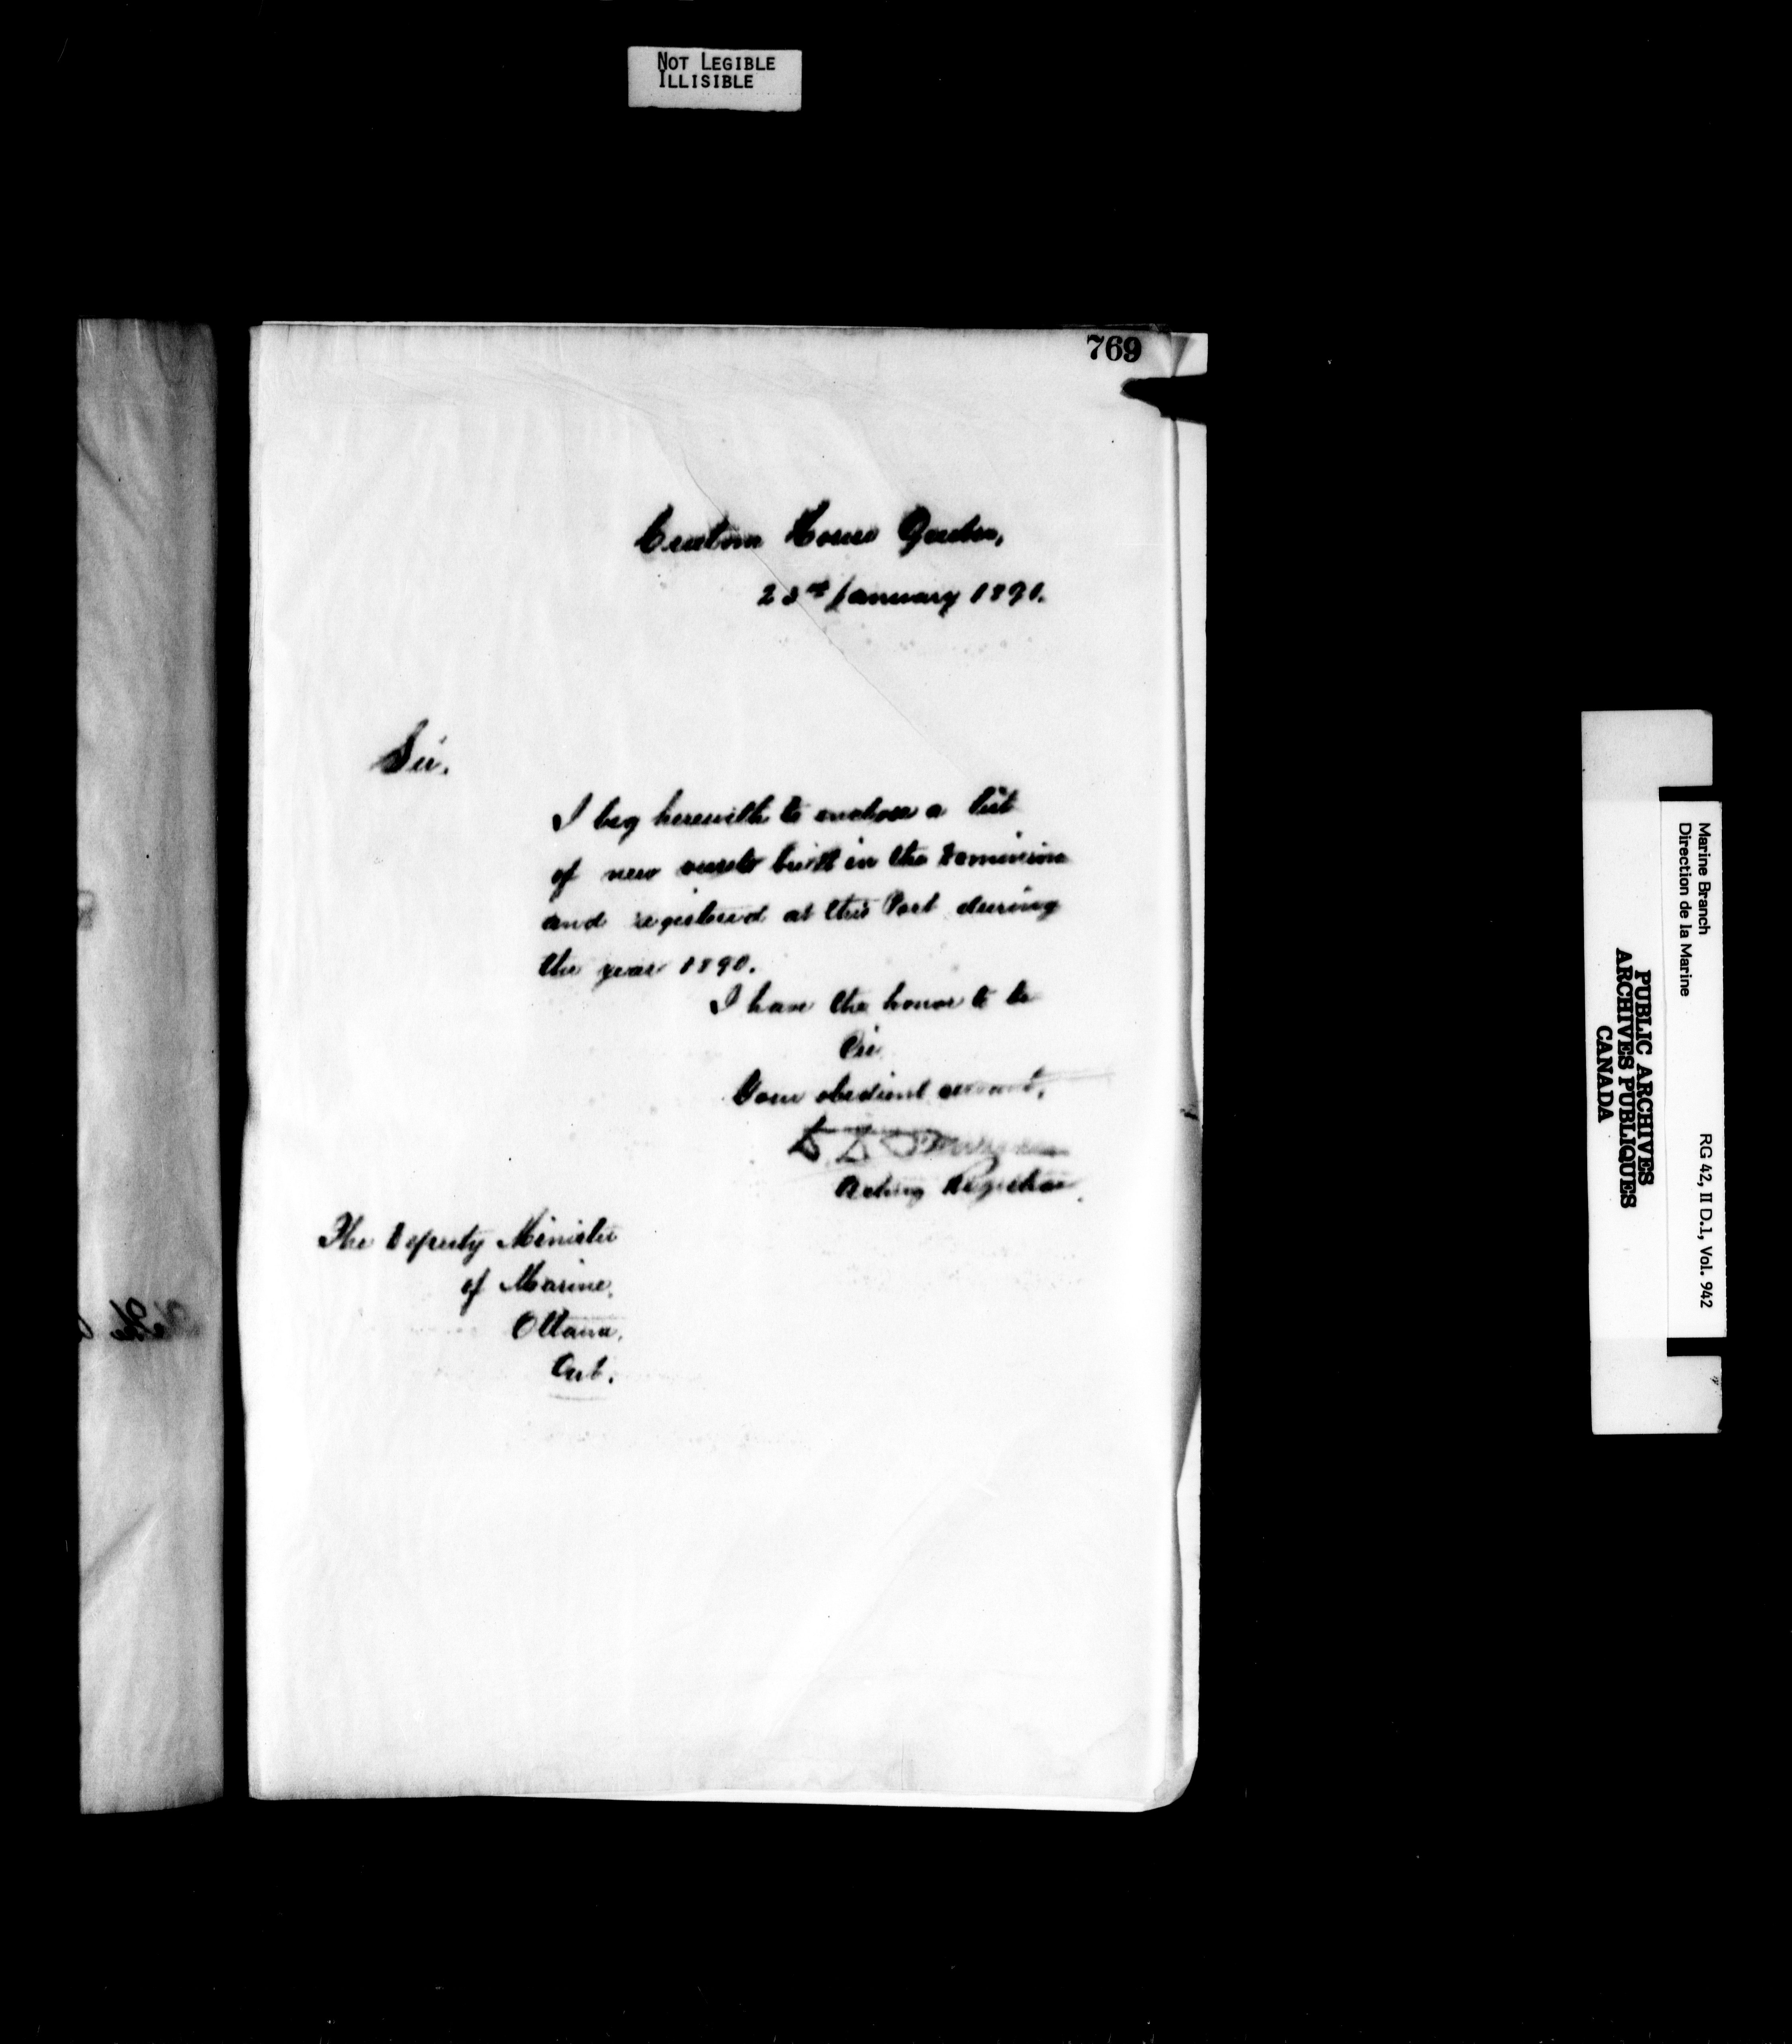 NOT LEGIBLE
ILLISIBLE
769
Custom House Quebec,
23rd January 1891.
Sir.
I beg herewith to enclose a list
of new vessels built in the Dominion
and registered at this Port during
the year 1890.
I have the honor to be
Sir
Your obedient servant,
Acting Registrar.
The Deputy Minister
of Marine,
Ottawa,
Ont.
Marine Branch RG 42, II D.1, Vol. 942
Direction de la Marine
PUBLIC ARCHIVES
ARCHIVES PUBLIQUES
CANADA